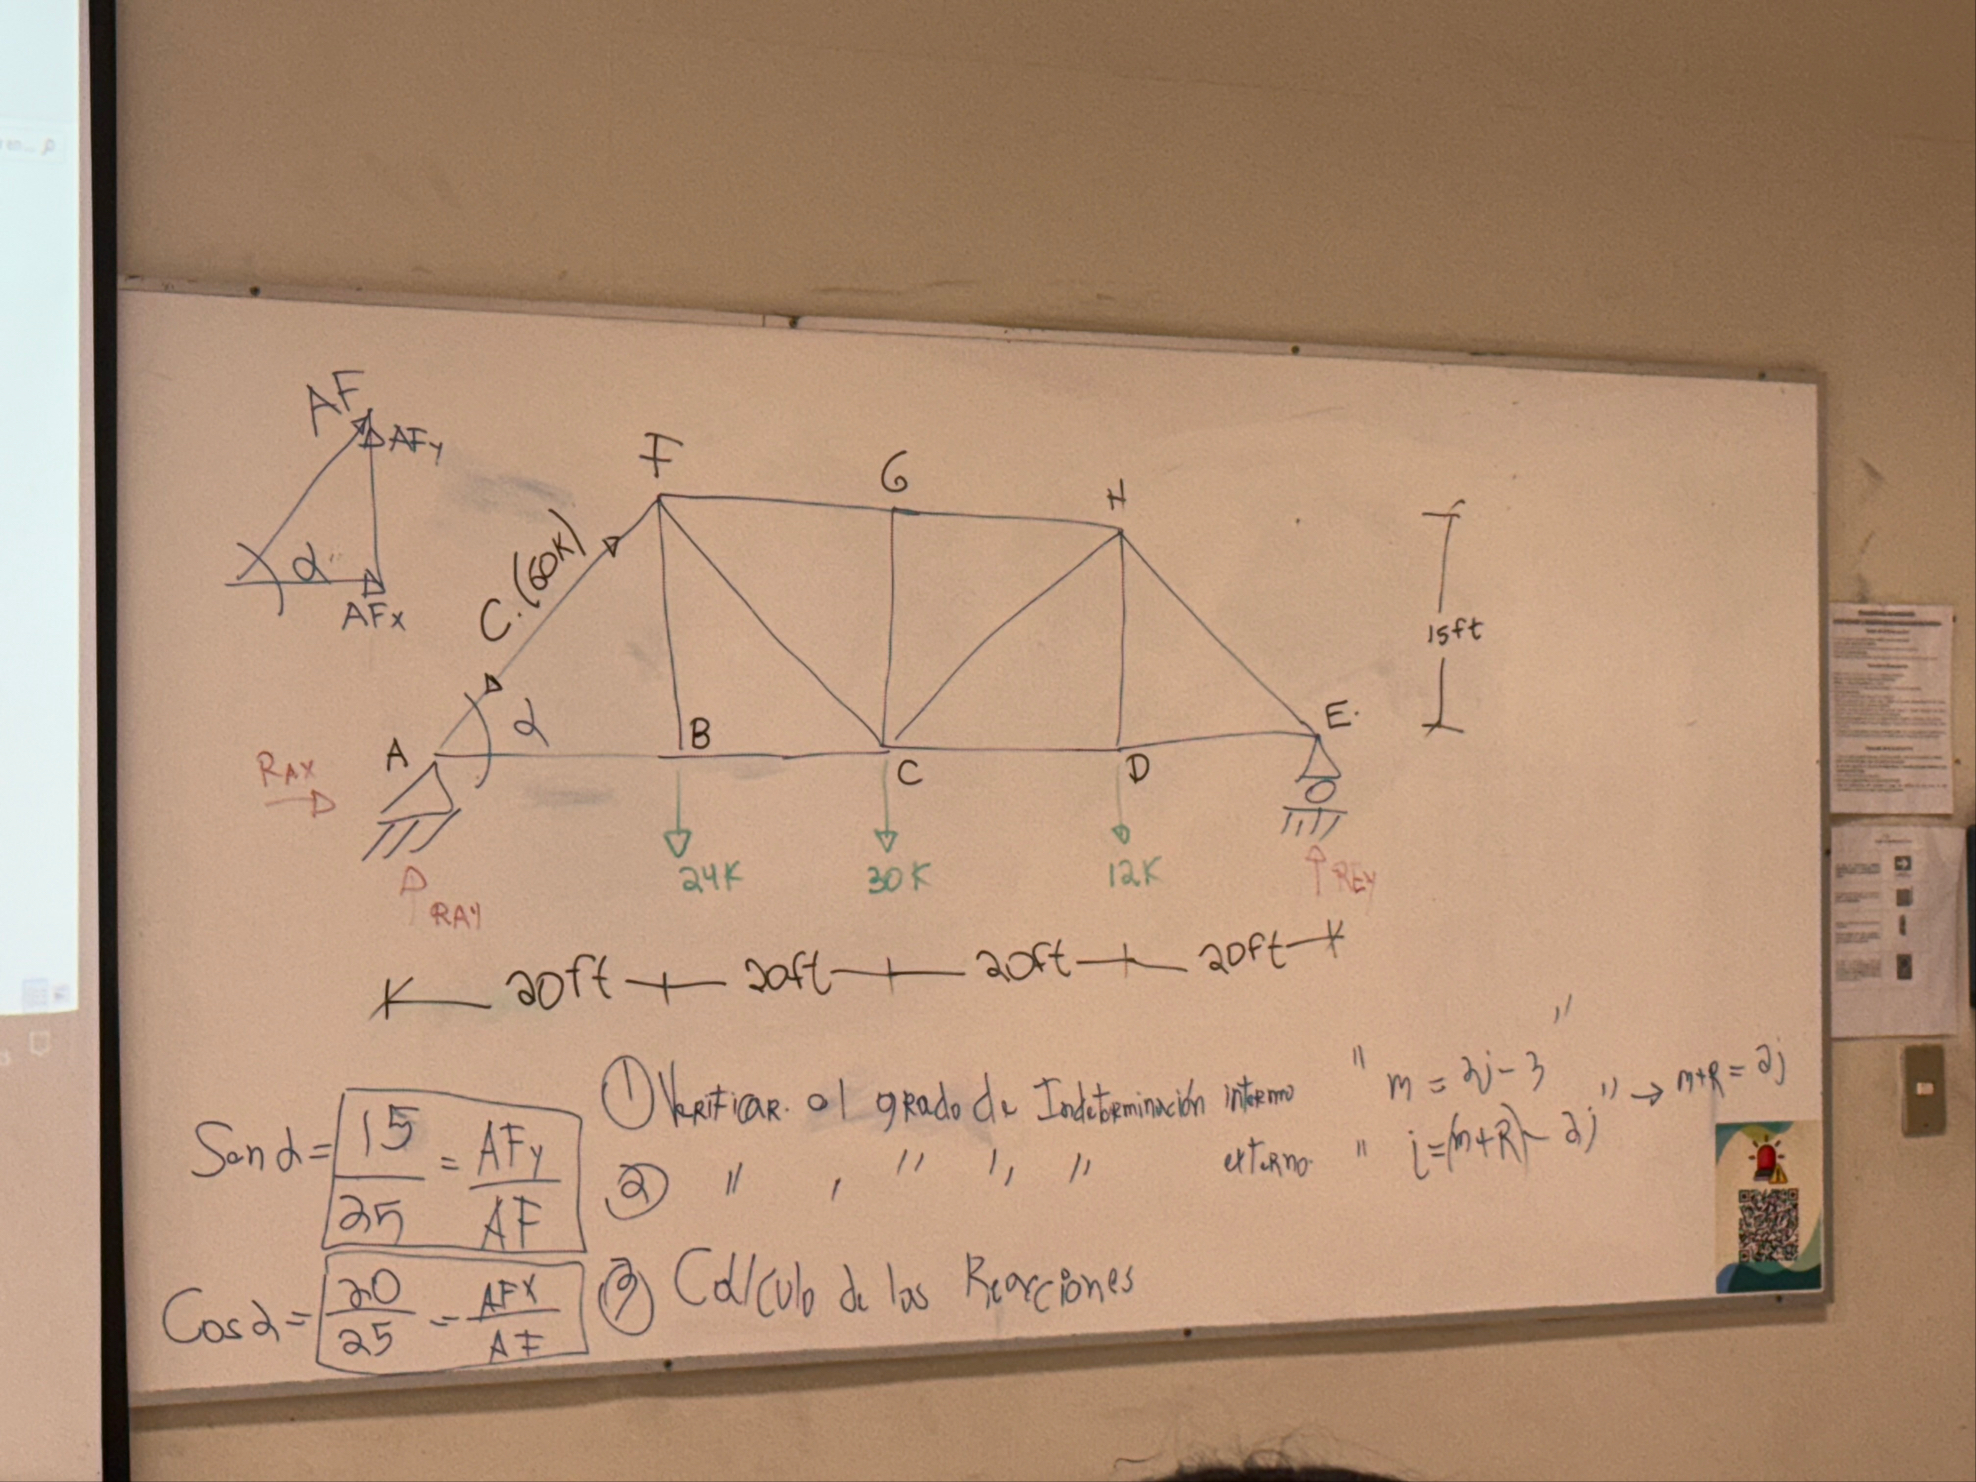 AF
AFy
α
AFx
F
G
H
C.(60K)
15ft
α
A
B
C
D
E.
RAX
24K
30K
12K
RAY
REY
20ft
20ft
20ft
20ft
① Verificar el grado de Indeterminación interno " m = 2j - 3 "
② " , " ", " externo " i=(m+R) - 2j " → m+R = 2j
③ Cálculo de las Reacciones
Sen α = 15/25 = AFy/AF
Cos α = 20/25 = AFx/AF